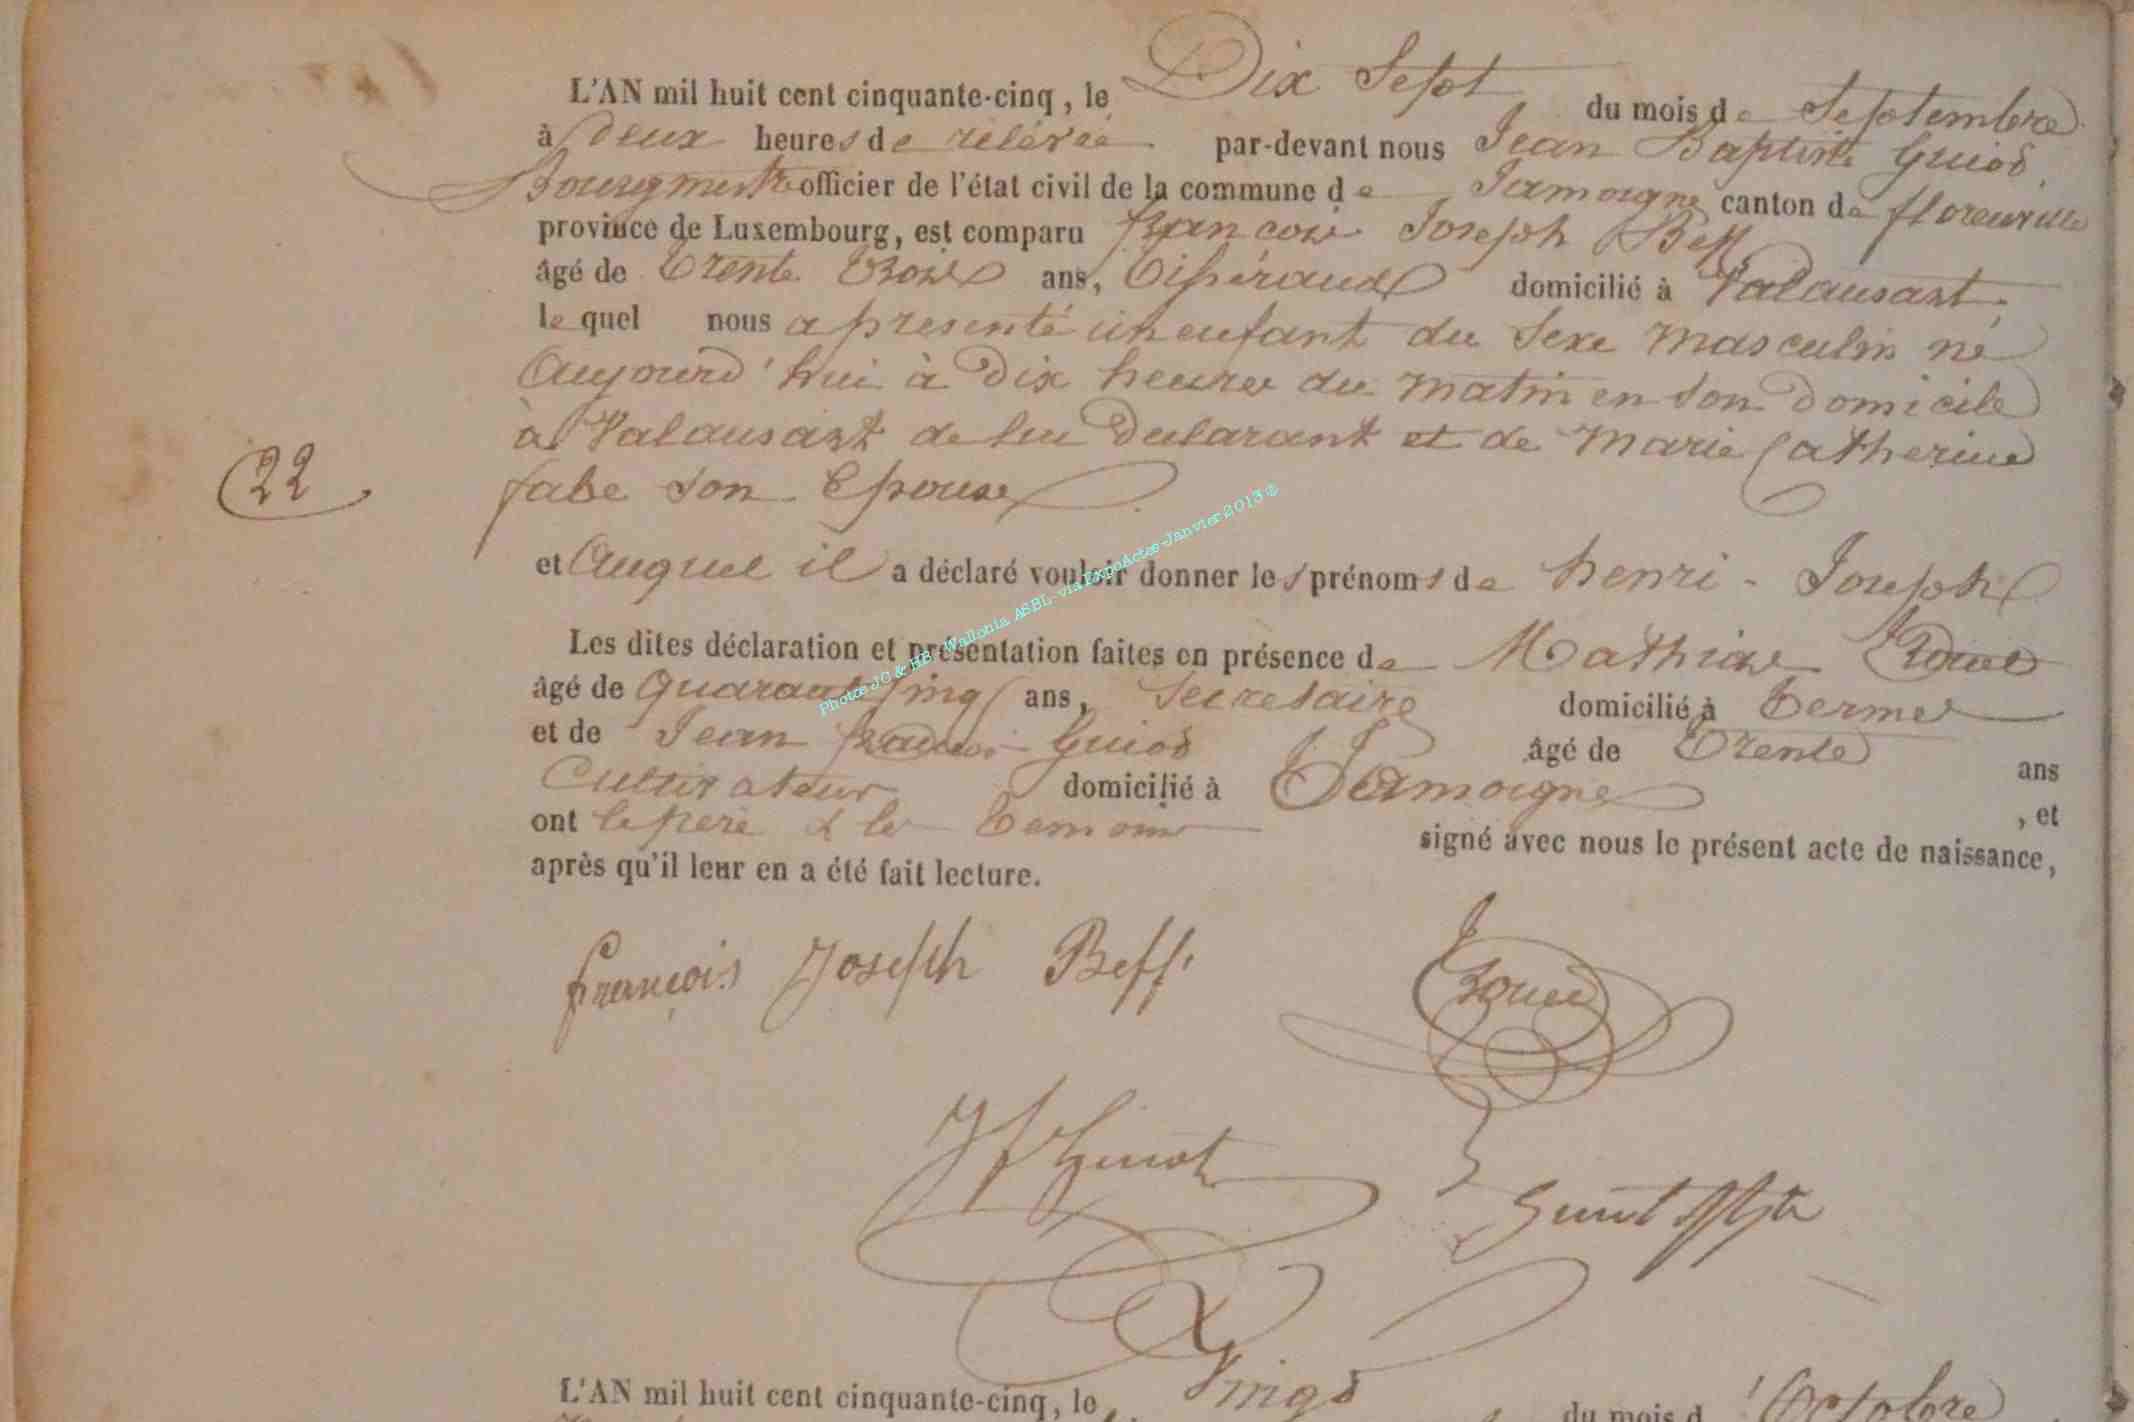 L'AN mil huit cent cinquante-cinq, le Dix Sept du mois de Septembre
à deux heures de relévée par-devant nous Jean Baptiste Guiot
Bourgmestre officier de l'état civil de la commune de Jamoigne canton de florenville
province de Luxembourg, est comparu françois Joseph Beff
âgé de trente trois ans, domicilié à Valansart
le quel nous a presenté un enfant du Sexe masculin né
Aujourd'hui à Dix heures du matin en son Domicile
à Valansart de lui Déclarant et de Marie Catherine
22
fabe son Epouse
et Auquel il a déclaré vouloir donner les prénoms de henri - Joseph
Les dites déclaration et présentation faites en présence de Mathias
âgé de Quarante Cinq ans, Secretaire domicilié à Termes
et de Jean Guiot âgé de Trente ans
Cultivateur domicilié à Jamoigne , et
ont le père & les temoins signé avec nous le présent acte de naissance,
après qu'il leur en a été fait lecture.
françois Joseph Beff
JfGuiot
Photos JC & BB Wallonia ASBL - via ExpoActes-Janvier 2013 ©
L'AN mil huit cent cinquante-cinq, le Vingt du mois d'Octobre